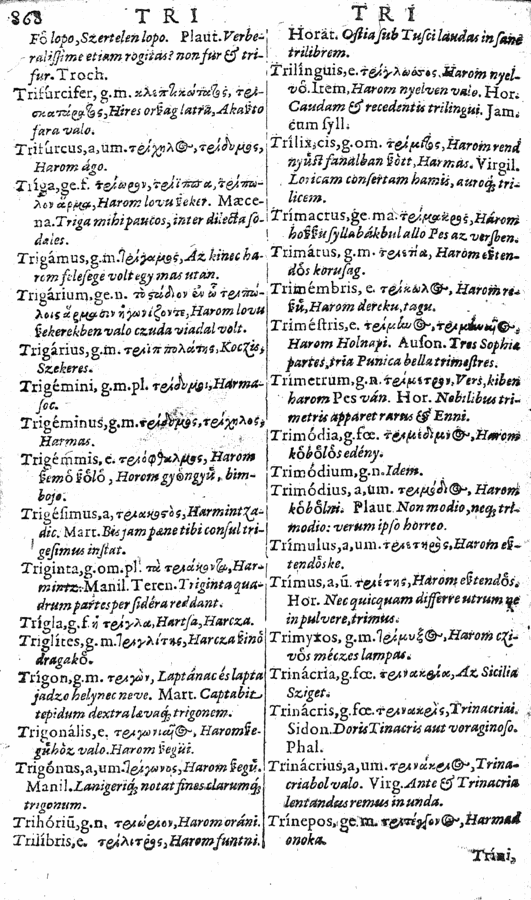 868 TRI TRI
Fô lopo, Szertelen lopo. Plaut. Verbe-
ralissime etiam rogitas? non fur & tri-
fur. Troch.
Trifurcifer, g.m.
fara valo.
Trifurcus, a, um. τρίχηλ@, τρίδυμος,
Harom ágo.
Tríga, ge. f.
Harom lovu ßeker. Mæce-
na. Triga mihi paucos, inter dilecta so-
dales.
Trigámus, g.m. Τρίγαμος, Az kinec ha-
rom felesege volt egy mas utan.
Trigárium, ge. n.
Harom lovu
ßekerekben valo czuda viadal volt.
Trigárius, g.m. Koczis,
Szekeres.
Trigémini, g.m.pl. τρίδυμοι, Harma-
soc.
Trigéminus, g.m. τρίδυμος, τρίχηλος,
Harmas.
Trigémmis, e. τριόφθαλμος, Harom
ßemô ßôlô, Horom gyôngyű, bim-
bojo.
Trigésimus, a, τριακοςὸς, Harmintza-
dic. Mart. Bis jam pæne tibi consul tri-
gesimus instat.
Triginta, g.om.pl. τὰ τριάκοντα, Har-
mintz. Manil. Teren. Triginta qua-
drum partes per sidéra reddant.
Trígla, g.f. ἡ τρίγλα, Hartsa, Harcza.
Triglítes, g.m. Τριγλίτης, Harcza ßinô
dragakô.
Trígon, g.m. τριγὼν, Laptánac és lapta
jadzo helynec neve. Mart. Captabit
tepidum dextra lævaq; trigonem.
Trigonális, e. Harom ße-
gűhöz valo. Harom ßegűi.
Trigónus, a, um. Τρίγωνος, Harom ßegű.
Manil. Lanigeriq; notat fines clarumq;
trigonum.
Trihóriũ, g.n. τριώριον, Harom oráni.
Trilíbris, e. τρίλιτρος, Harom funtni.
Horat. Ostia sub Tusci laudas in sanè
trilibrem.
Trilínguis, e. τρίγλωσσος. Harom nyel-
vô. Item, Harom nyelven valo. Hor.
Caudam & recedentis trilingui. Jam.
cum syll.
Trílix, cis, g.om. τρίμιτος, Harom rend
nyűst fanalban ßôtt, Harmas. Virgil.
Loricam consertam hamis, auroq; tri-
licem.
Trímacrus, ge. ma. τρίμακρος, Hàrom
hoßßu syllabákbul allo Pes az versben.
Trimátus, g.m. τριετία, Harom eßten-
dôs korusag.
Trimémbris, e. τρίκωλ@, Harom re-
ßű, Harom dereku, tagu.
Triméstris, e.
Harom Holnapi. Auson. Tres Sophia
partes, tria Punica bella trimestres.
Trimetrum, g.n. τρίμετρον, Vers, kiben
harom Pes ván. Hor. Nobilibus tri-
metris apparet rarus & Enni.
Trimódia, g.fœ. τριμέδιμν@, Harom
kôbôlôs edény.
Trimódium, g.n. Idem.
Trimódius, a, um. Harom
kôbôlni. Plaut. Non modio, neq; tri-
modio: verum ipso horreo.
Trímulus, a, um. τριετηρὸς, Harom eß-
tendôske.
Trímus, a, ũ. τριέτης, Harom eßtendôs.
Hor. Nec quicquam differre utrum ne
in pulvere, trimus.
Trimyxos, g.m. Τρίμυξ@, Harom czi-
vôs méczes lampas.
Trinácria, g.fœ. τρινακρία, Az Sicilia
Sziget.
Trinácris, g.fœ. τρινακρὶς, Trinacriai.
Sidon. Doris Tinacris aut voraginoso.
Phal.
Trinácrius, a, um. τρινάκρι@, Trina-
criabol valo. Virg. Ante & Trinacria
lentandus remus in unda.
Trínepos, ge. m. Harmad
onoka.
Tríni,